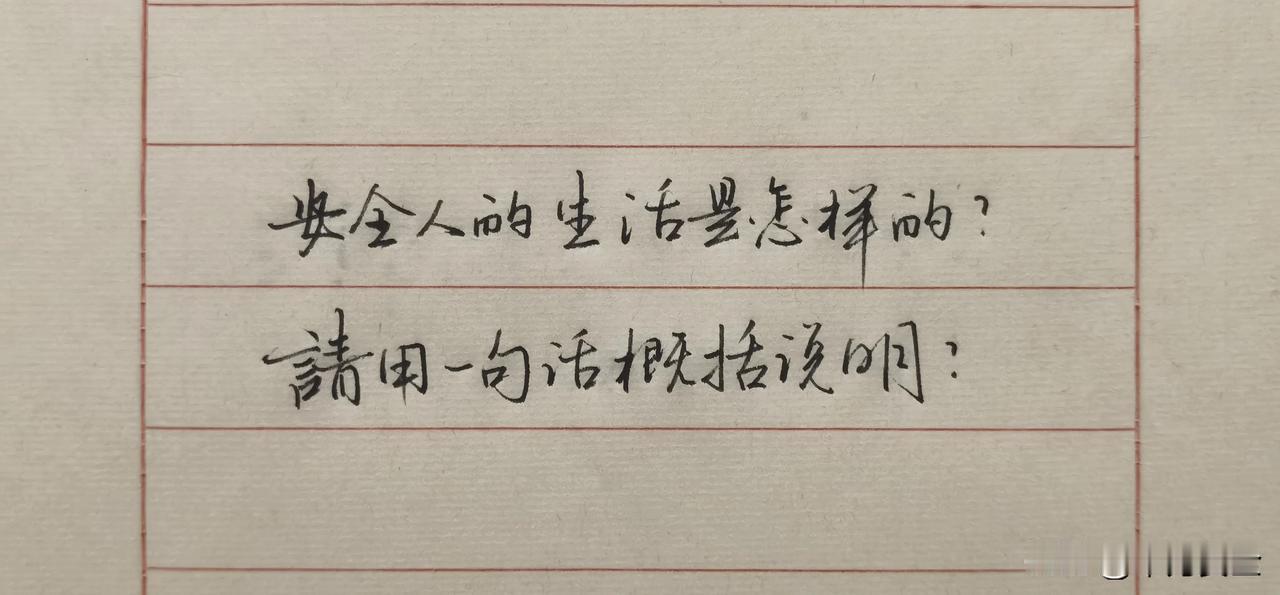 安全人的生活是怎样的？
請用一句话概括说明？